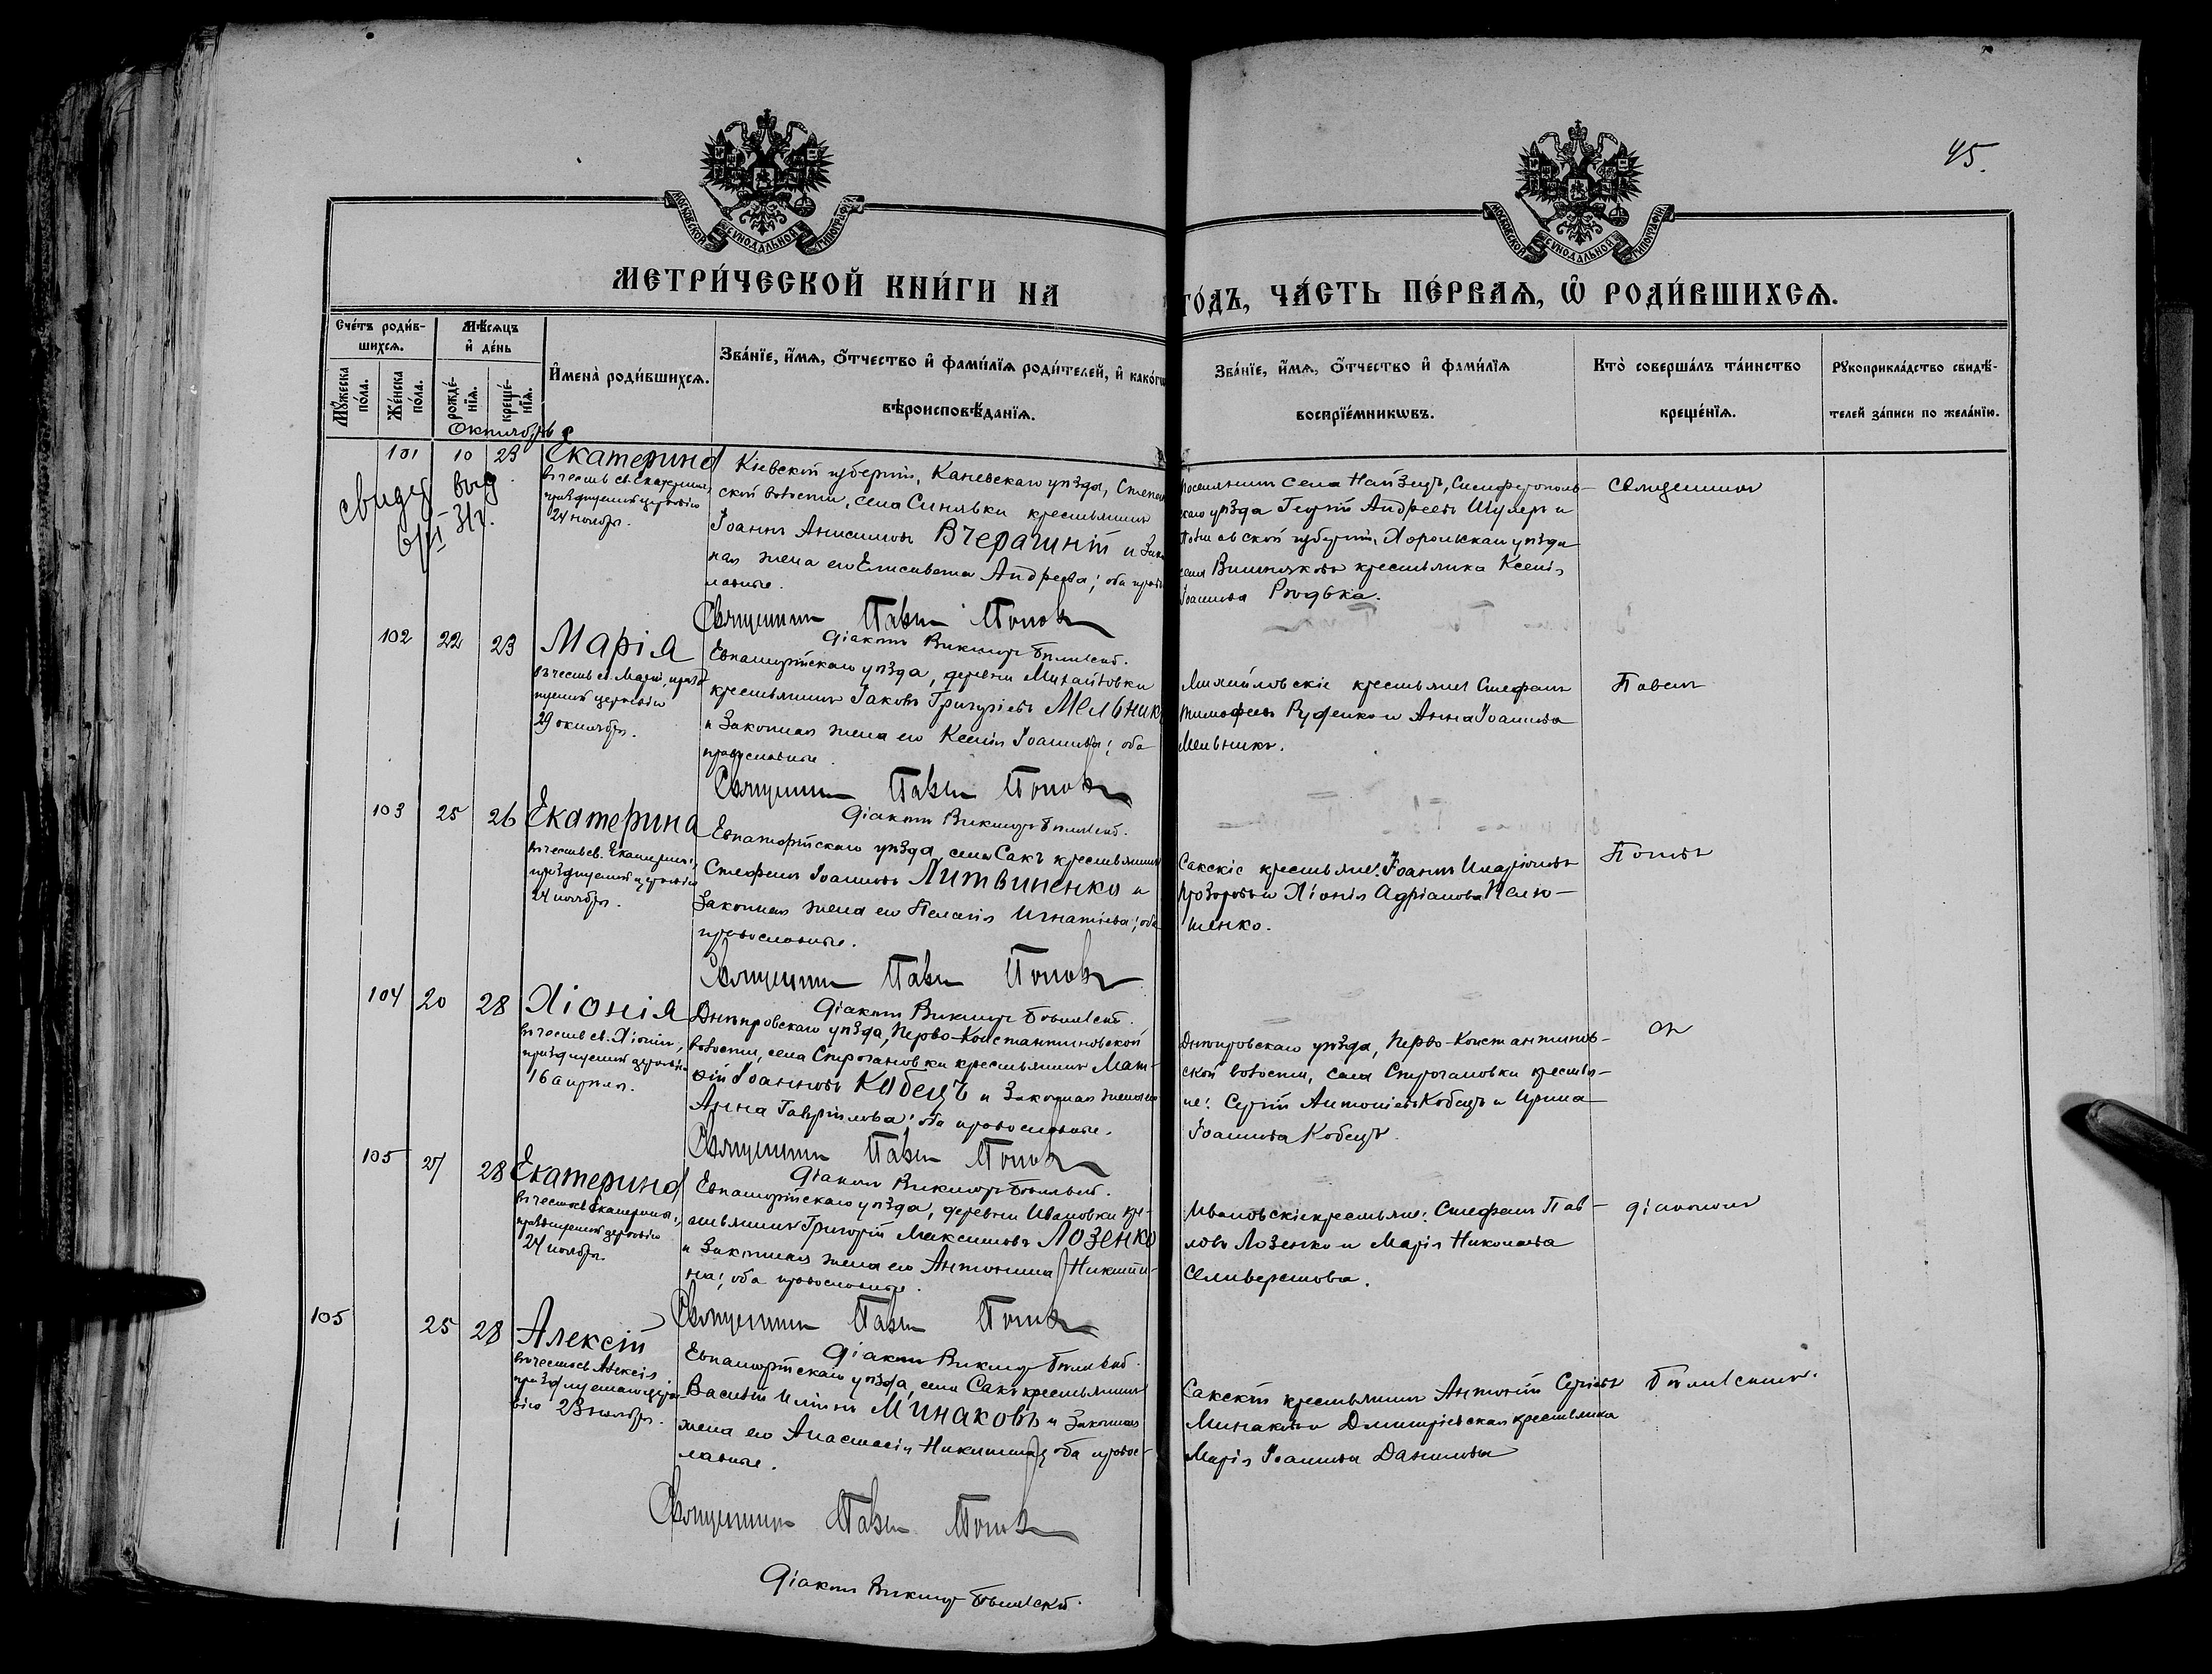 45.
МОСКОВСКОЙ СѴНОДАЛЬНОЙ ТИПОГРАФІИ
МОСКОВСКОЙ СѴНОДАЛЬНОЙ ТИПОГРАФІИ
МЕТРИ́ЧЕСКОЙ КНИ́ГИ НА
ГО́ДЪ, ЧА́СТЬ ПЕ́РВАѦ, Ѡ РОДИ́ВШИХСѦ.
Сче́тъ роди́в-
шихсѧ.
Мѣ́сѧцъ
и҆ де́нь
Мꙋ́жеска
по́ла.
Же́нска
по́ла.
рожде́-
нїѧ.
креще́-
нїѧ.
И҆мена̀ роди́вшихсѧ.
Зва́нїе, и҆́мѧ, ѻ҆́тчество и҆ фами́лїѧ роди́телей, и҆ како́гѡ
вѣроисповѣ́данїѧ.
Зва́нїе, и҆́мѧ, ѻ҆́тчество и҆ фами́лїѧ
воспрїе́мникѡвъ.
Кто̀ соверша́лъ та́инство
креще́нїѧ.
Рꙋкоприкла́дство свидѣ́-
телей за́писи по жела́нїю.
Октябрь
101 10 23 Екатерина
въ честь св. Екатерины,
празднуемой церковію
24 ноября.
свидѣ выд
31г.
Кіевской губерніи, Каневскаго уѣзда, Степан
ской волости, села Синявки крестьянинъ
Іоаннъ Анисимовъ Вчерашній и Закон
ная жена его Елисавета Андреева; оба право
лавные.
Священникъ Павелъ Поповъ
Діаконъ Викторъ Бѣлявскій.
Поселянинъ села Найзацъ, Симферополь-
скаго уѣзда Георгій Андреевъ Шулеръ и
Полтавской губерніи, Хорольскаго уѣзда
села Вишняковъ крестьянка Ксенія
Іоаннова Родька.
Священникъ
102 22 23 Марія
въ честь св. Маріи, празд
нуемой церковію
29 октября.
Евпаторійскаго уѣзда, деревни Михайловки
крестьянинъ Іаковъ Григорьевъ Мельникъ
и Законная жена его Ксенія Іоаннова; оба
православные.
Священникъ Павелъ Поповъ
Діаконъ Викторъ Бѣлявскій.
Михайловскіе крестьяне Стефанъ
Тимофеевъ Руденко и Анна Іоаннова
Мельникъ.
Павелъ
103 25 26 Екатерина
въ честь св. Екатерины,
празднуемой церковію
24 ноября.
Евпаторійскаго уѣзда, села Сакъ крестьянинъ
Стефанъ Іоанновъ Литвиненко и
Законная жена его Пелагія Игнатіева; оба
православные.
Священникъ Павелъ Поповъ
Діаконъ Викторъ Бѣлявскій.
Сакскіе крестьяне: Іоаннъ Иларіоновъ
Прозоровъ и Хіонія Адріанова Пелю-
шенко.
Поповъ
104 20 28 Хіонія
въ честь св. Хіоніи,
празднуемой церковію
16 апреля.
Днепровскаго уѣзда, Перво-Константиновской
волости, села Строгановки крестьянинъ Мат-
ѳій Іоанновъ Кобецъ и Законная жена его
Анна Гавріилова; оба православные.
Священникъ Павелъ Поповъ
Діаконъ Викторъ Бѣлявскій.
Днепровскаго уѣзда, Перво-Константинов-
ской волости, села Строгановки крестья-
не: Сергій Антоніевъ Кобецъ и Ирина
Іоаннова Кобецъ.
съ
105 27 28 Екатерина
въ честь св. Екатерины,
празднуемой церковію
24 ноября.
Евпаторійскаго уѣзда, деревни Ивановки кре-
стьянинъ Григорій Максимовъ Лозенко
и Законная жена его Антонина Никити-
на; оба православные.
Священникъ Павелъ Поповъ
Діаконъ Викторъ Бѣлявскій.
Ивановскіе крестьяне: Стефанъ Пав-
ловъ Лозенко и Марія Николаева
Селиверстова.
діакономъ
105 25 28 Алексій
въ честь Алексія
празднуемаго церко
вію 23 ноября.
Евпаторійскаго уѣзда, села Сакъ крестьянинъ
Василій Иліинъ Минаковъ и Законная
жена его Анастасія Никитина; оба правос-
лавные.
Священникъ Павелъ Поповъ
Діаконъ Викторъ Бѣлявскій.
Сакскій крестьянинъ Антоній Сергіевъ
Минаковъ и Димитріевская крестьянка
Марія Іоаннова Данилова
Бѣлявскимъ.